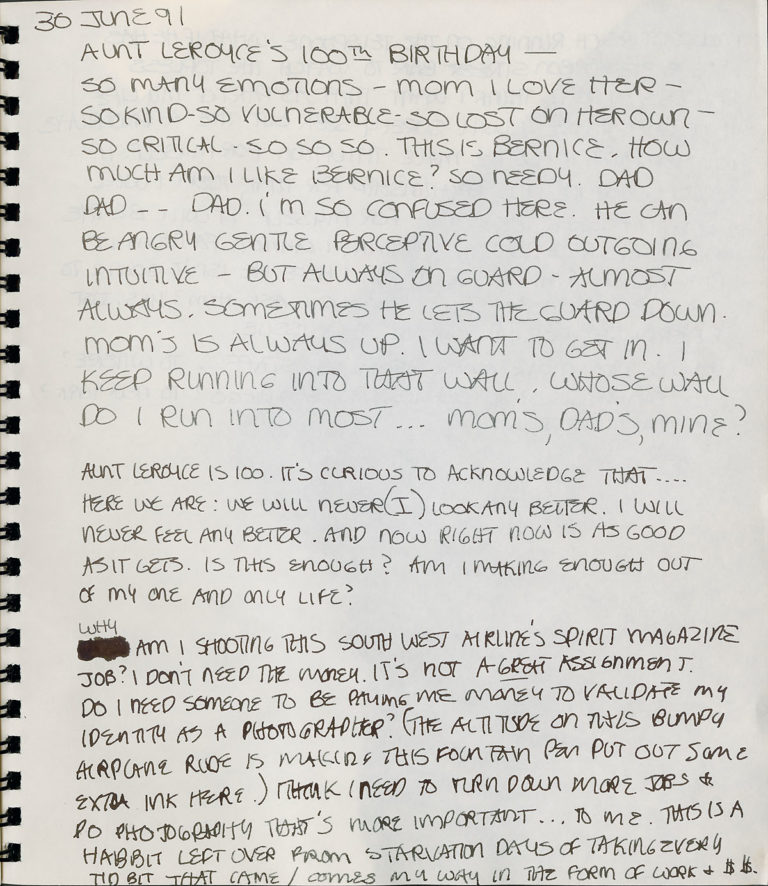 30 JUNE 91
AUNT LEROYCE'S 100TH BIRTHDAY
SO MANY EMOTIONS - MOM I LOVE HER -
SO KIND - SO VULNERABLE - SO LOST ON HER OWN -
SO CRITICAL - SO SO SO. THIS IS BERNICE. HOW
MUCH AM I LIKE BERNICE? SO NEEDY. DAD
DAD -- DAD. I'M SO CONFUSED HERE. HE CAN
BE ANGRY GENTLE PERCEPTIVE COLD OUTGOING
INTUITIVE - BUT ALWAYS ON GUARD - ALMOST
ALWAYS. SOMETIMES HE LETS THE GUARD DOWN.
MOM'S IS ALWAYS UP. I WANT TO GET IN. I
KEEP RUNNING INTO THAT WALL. WHOSE WALL
DO I RUN INTO MOST... MOM'S, DAD'S, MINE?
AUNT LEROYCE IS 100. IT'S CURIOUS TO ACKNOWLEDGE THAT....
HERE WE ARE: WE WILL NEVER (I) LOOK ANY BETTER. I WILL
NEVER FEEL ANY BETTER. AND NOW RIGHT NOW IS AS GOOD
AS IT GETS. IS THIS ENOUGH? AM I MAKING ENOUGH OUT
OF MY ONE AND ONLY LIFE?
WHY
AM I SHOOTING THIS SOUTH WEST AIRLINE'S SPIRIT MAGAZINE
JOB? I DON'T NEED THE MONEY. IT'S NOT A GREAT ASSIGNMENT.
DO I NEED SOMEONE TO BE PAYING ME MONEY TO VALIDATE MY
IDENTITY AS A PHOTOGRAPHER? (THE ALTITUDE ON THIS BUMPY
AIRPLANE RIDE IS MAKING THIS FOUNTAIN PEN PUT OUT SOME
EXTRA INK HERE.) I THINK I NEED TO TURN DOWN MORE JOBS &
DO PHOTOGRAPHY THAT'S MORE IMPORTANT... TO ME. THIS IS A
HABBIT LEFT OVER FROM STARVATION DAYS OF TAKING EVERY
TID BIT THAT CAME / COMES MY WAY IN THE FORM OF WORK & $$.